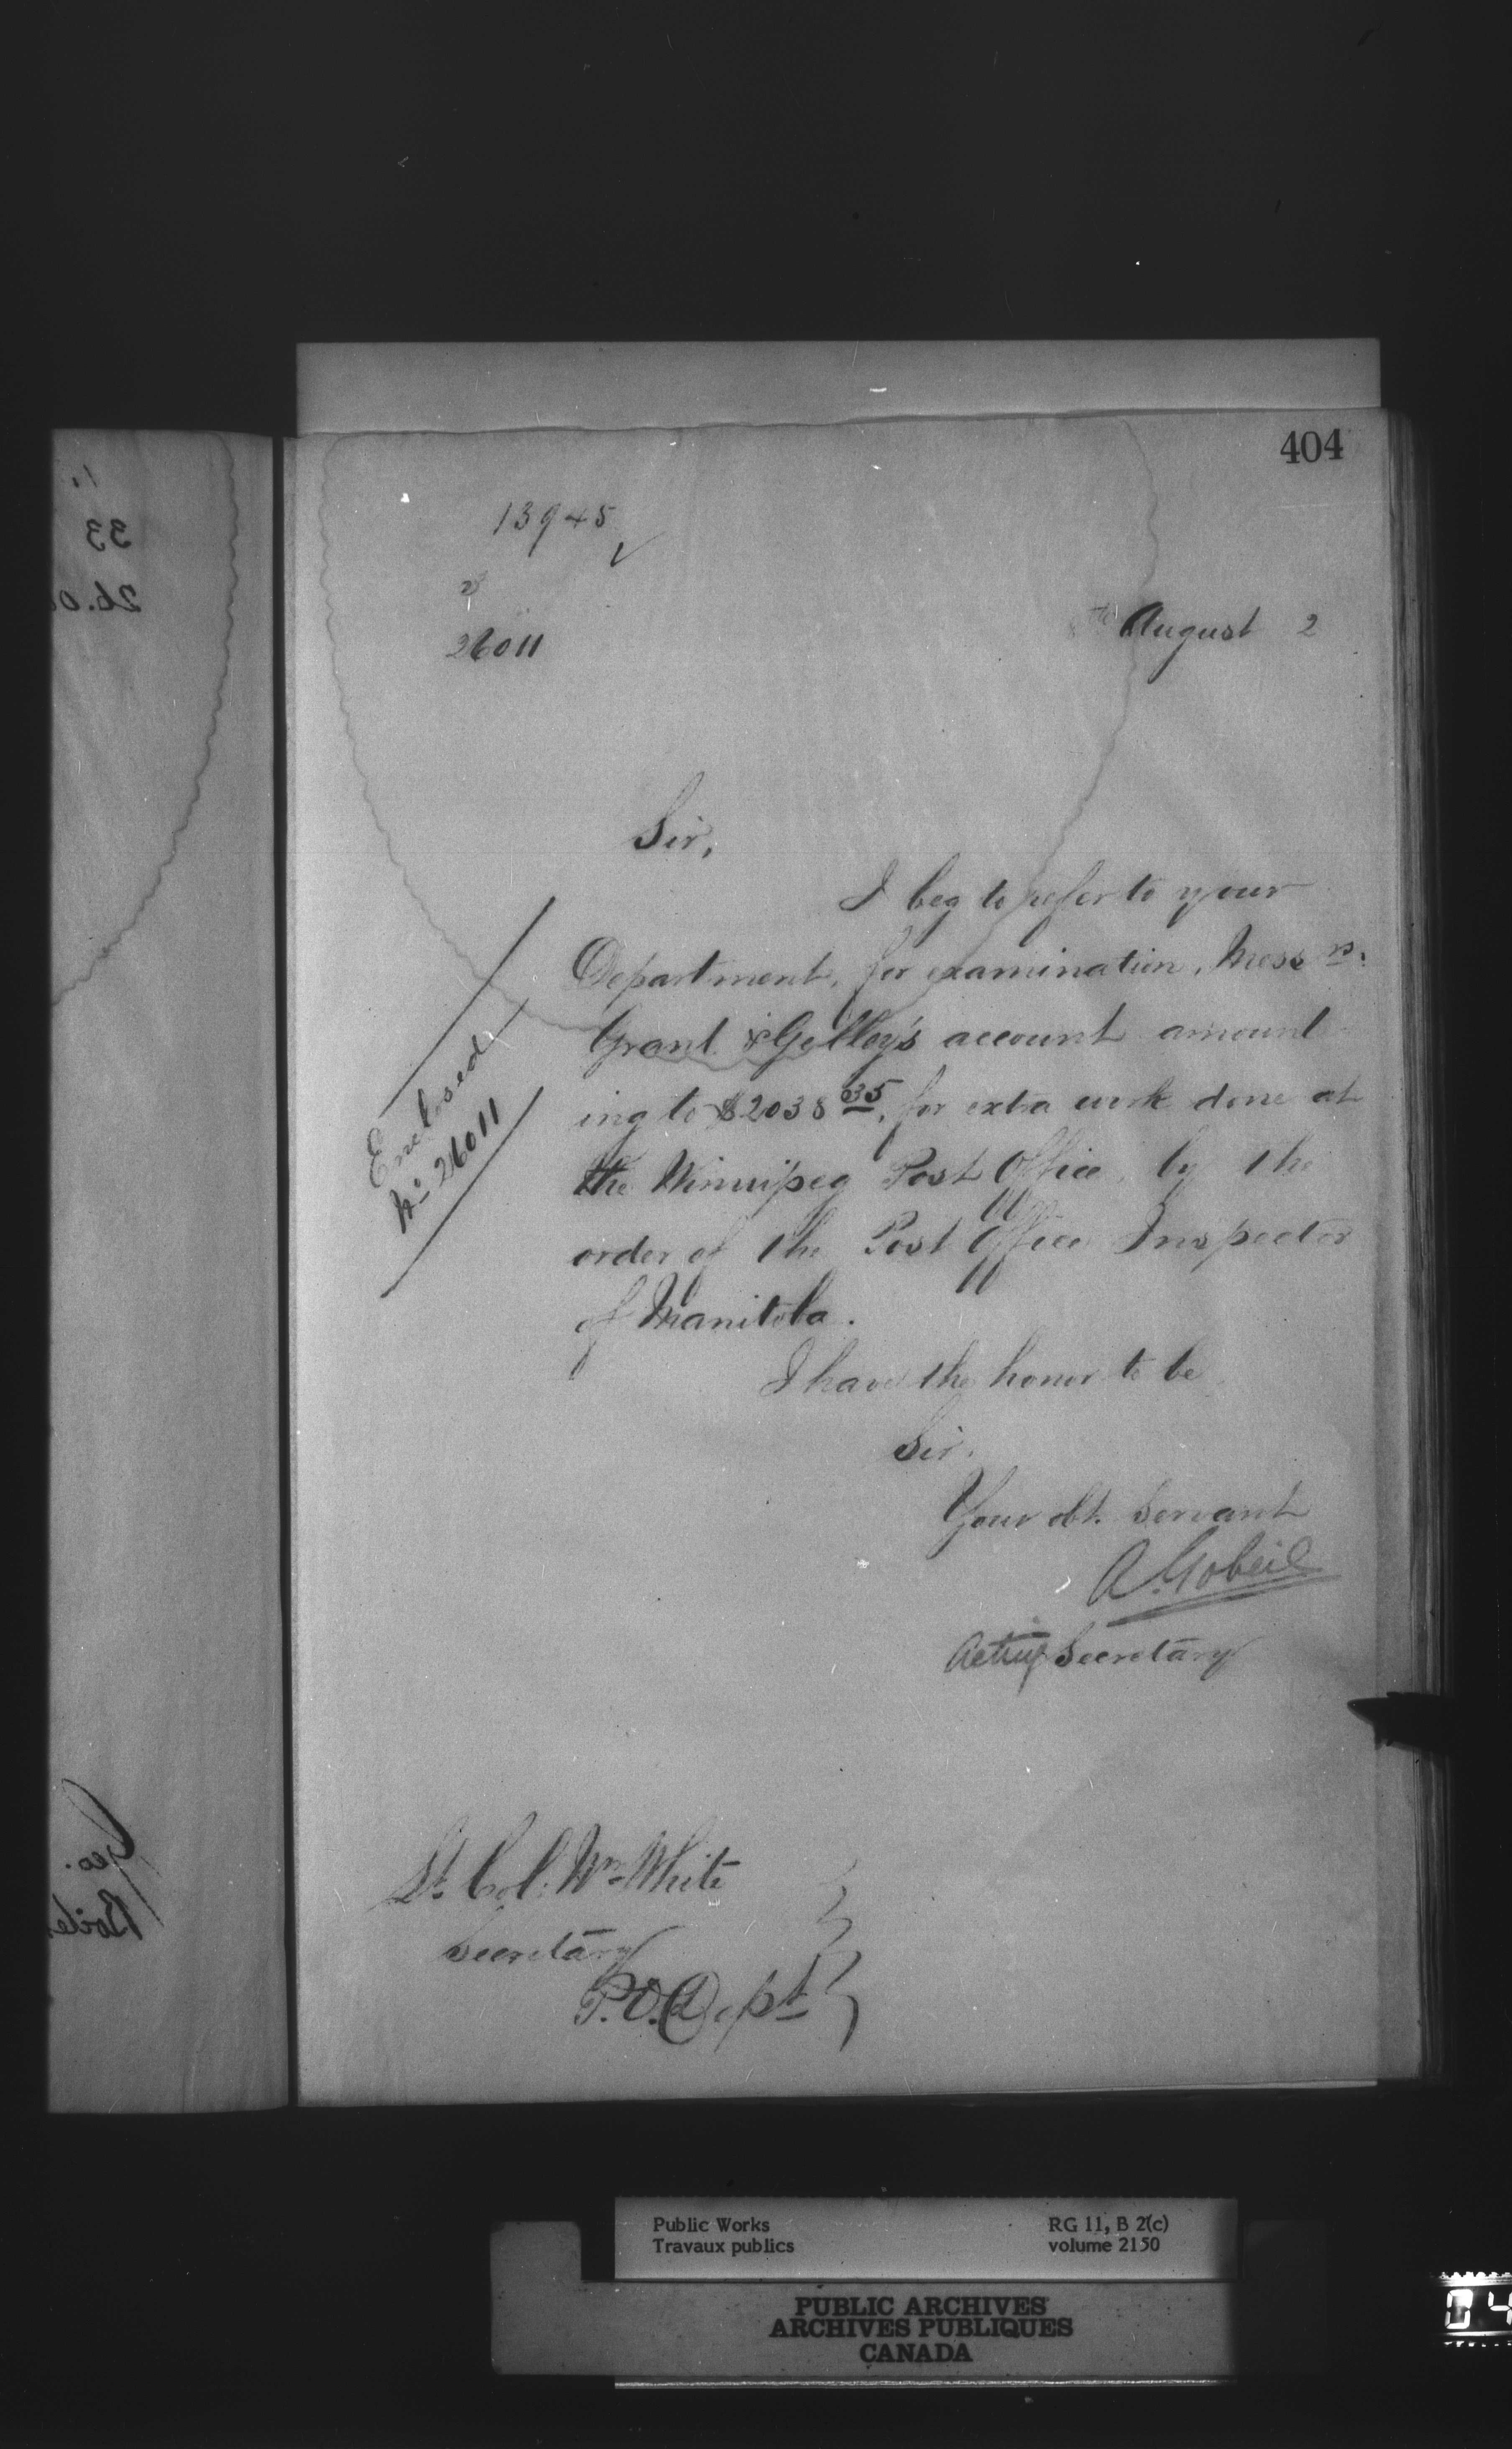 404
13945
26011
August 2
Sir,
I beg to refer to your
Department, for examination, Messrs.
Grant & Gelley's account amount
ing to $2038 35, for extra work done at
the Winnipeg Post Office, by the
order of the Post Office Inspector
of Manitoba.
Enclosed
No 26011
I have the honor to be
Sir.
Your obt. Servant
A. Gobeil
Acting Secretary
Lt. Col. Wm White
Secretary
P.O. Dept
33
26.0
Geo.
Public Works
Travaux publics
RG 11, B 2(c)
volume 2150
PUBLIC ARCHIVES
ARCHIVES PUBLIQUES
CANADA
04